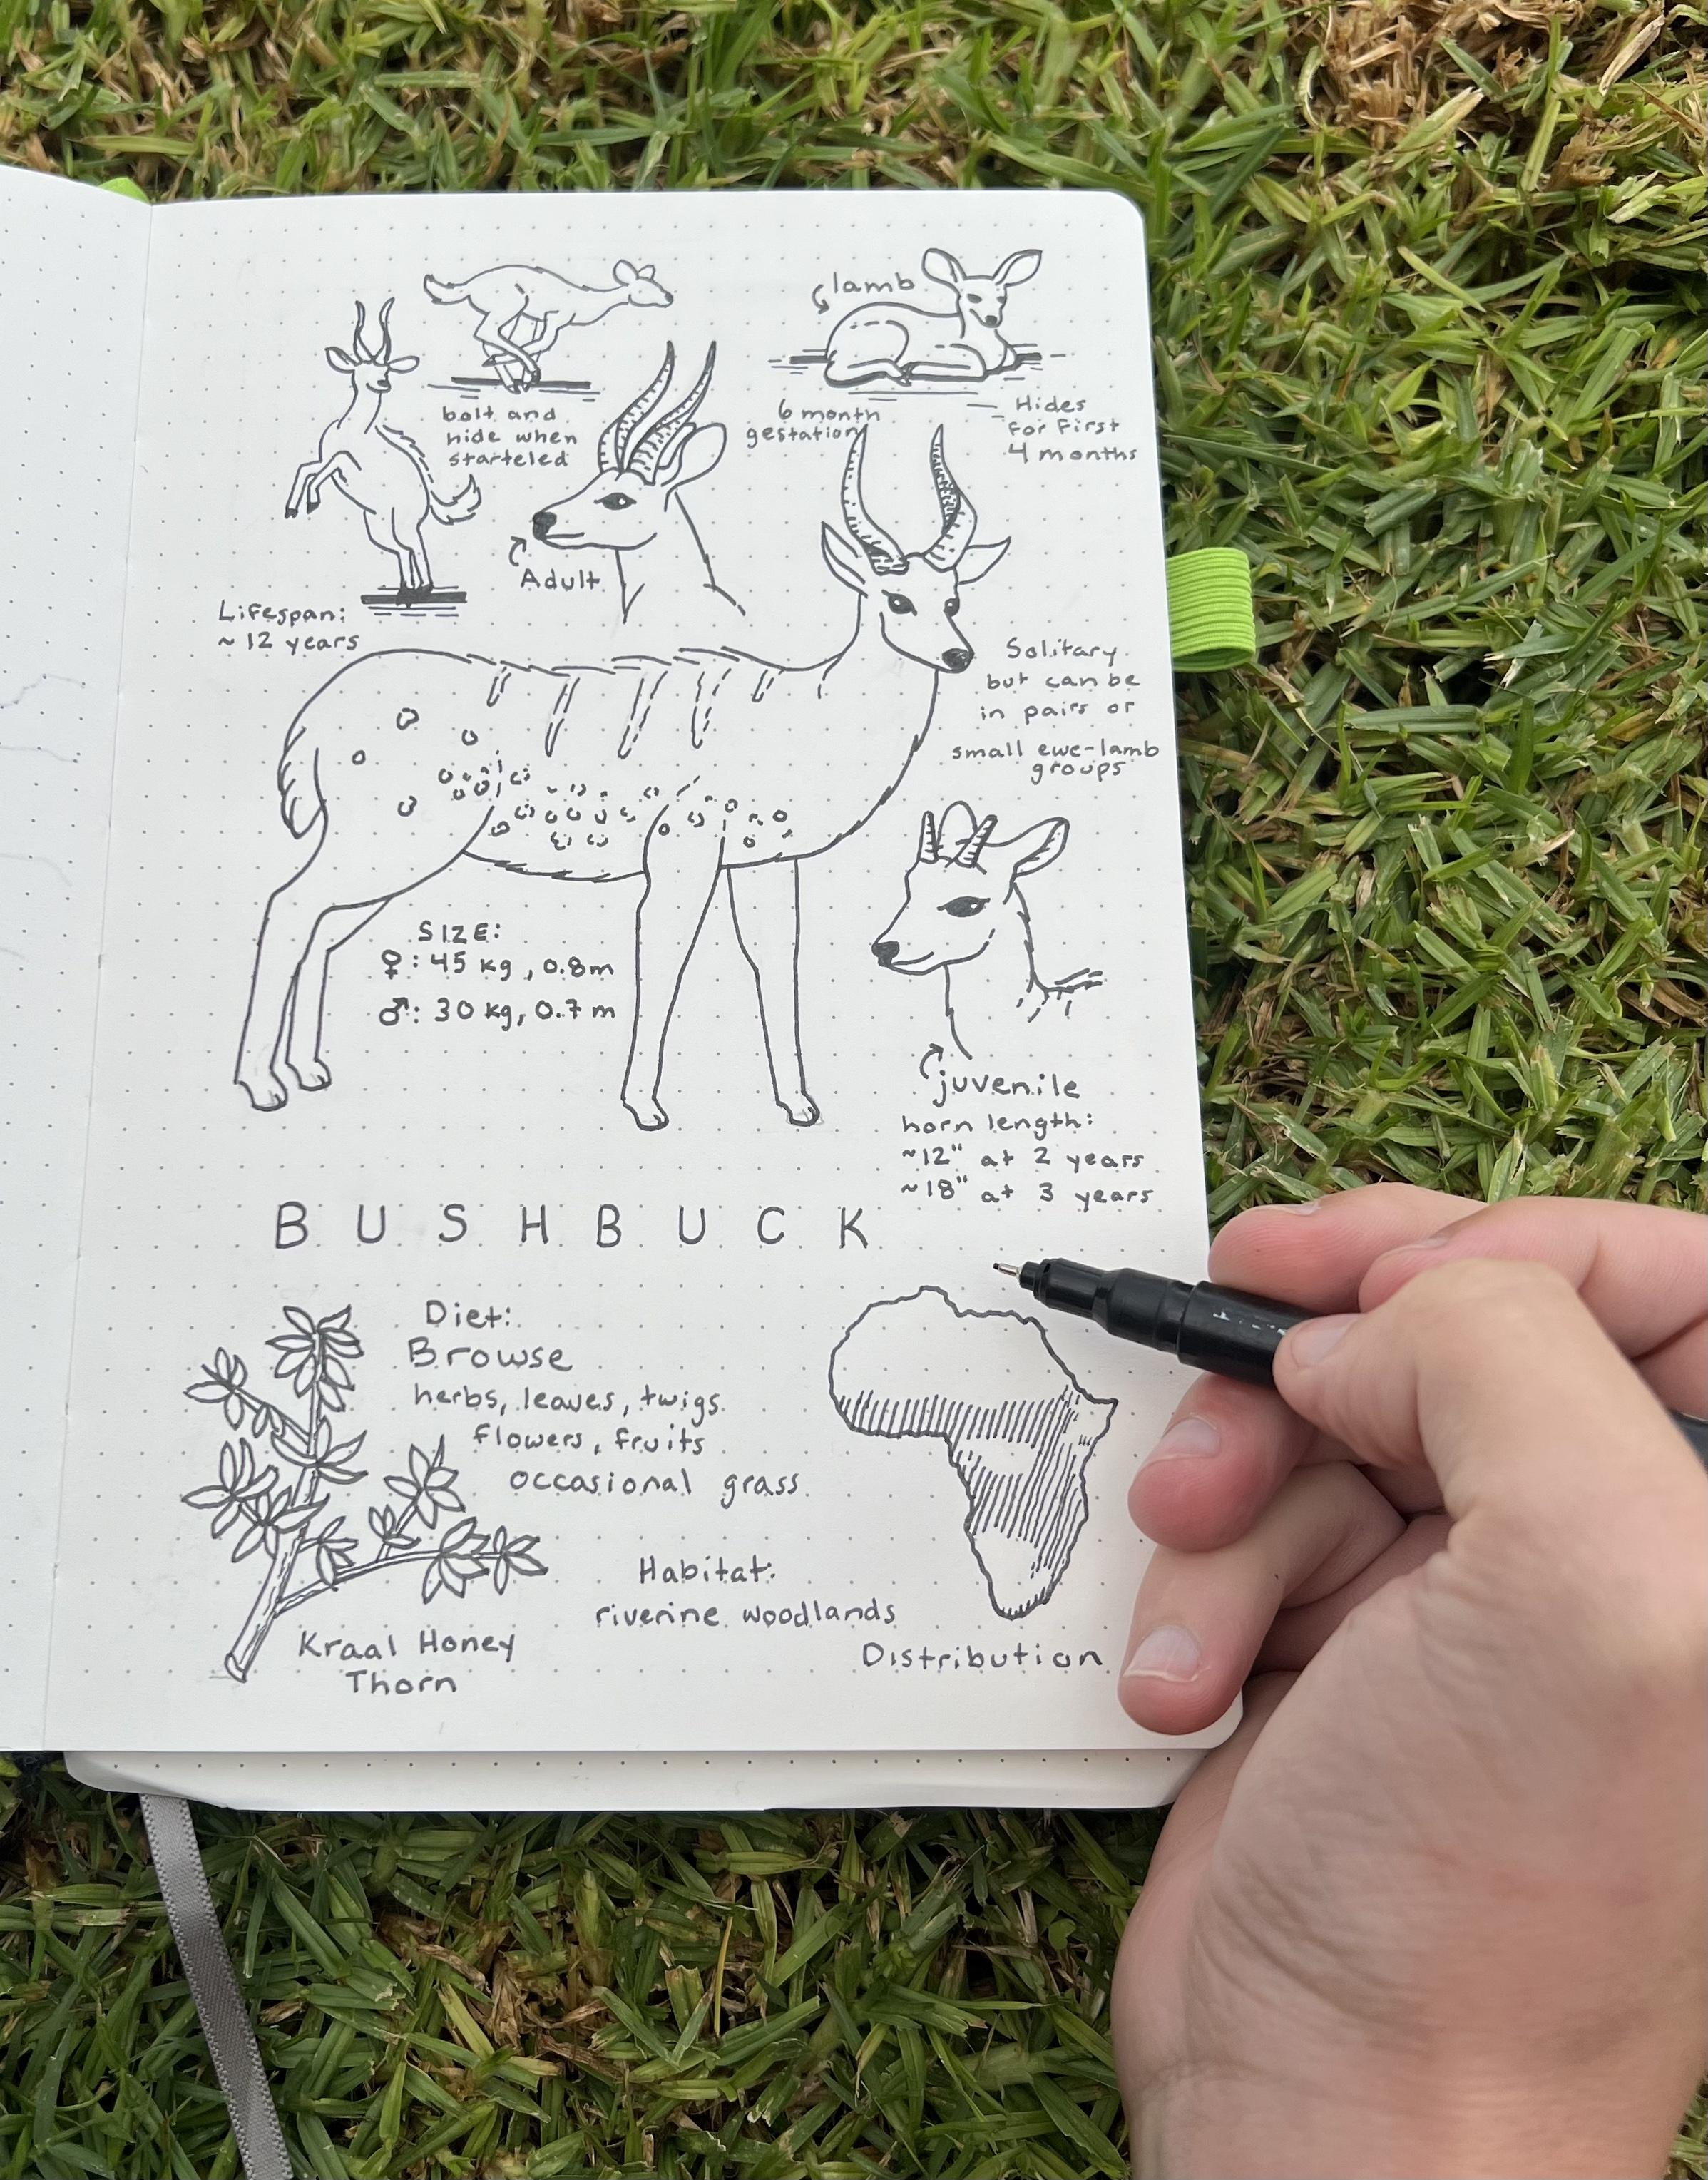 lamb
bolt and
hide when
starteled
6 month
gestation
Hides
for first
4 months
Adult
Lifespan:
~ 12 years
Solitary
but can be
in pairs or
small ewe-lamb
groups
SIZE:
♀: 45 kg, 0.8m
♂: 30 kg, 0.7 m
juvenile
horn length:
~12" at 2 years
~18" at 3 years
BUSHBUCK
Diet:
Browse
herbs, leaves, twigs
flowers, fruits
occasional grass
Habitat:
riverine woodlands
Kraal Honey
Thorn
Distribution